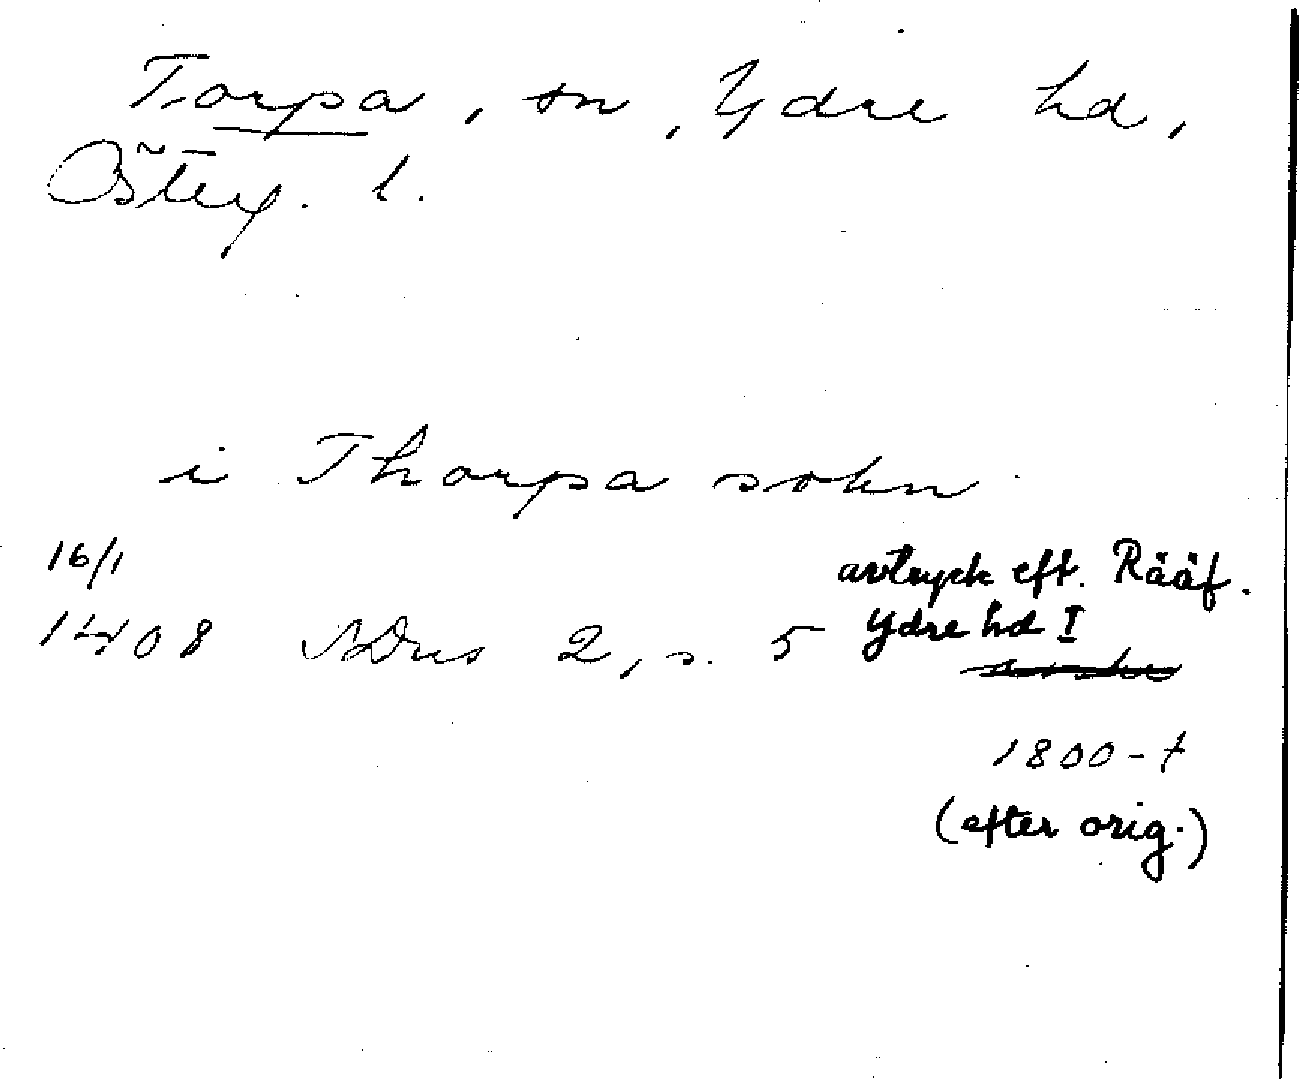 Torpa, sn, Ydre hd,
Österg. l.
i Thorpa sokn
16/1
1408 SDns 2, s. 5
avtryck eft. Rääf.
Ydre hd I
1800-t
(efter orig.)